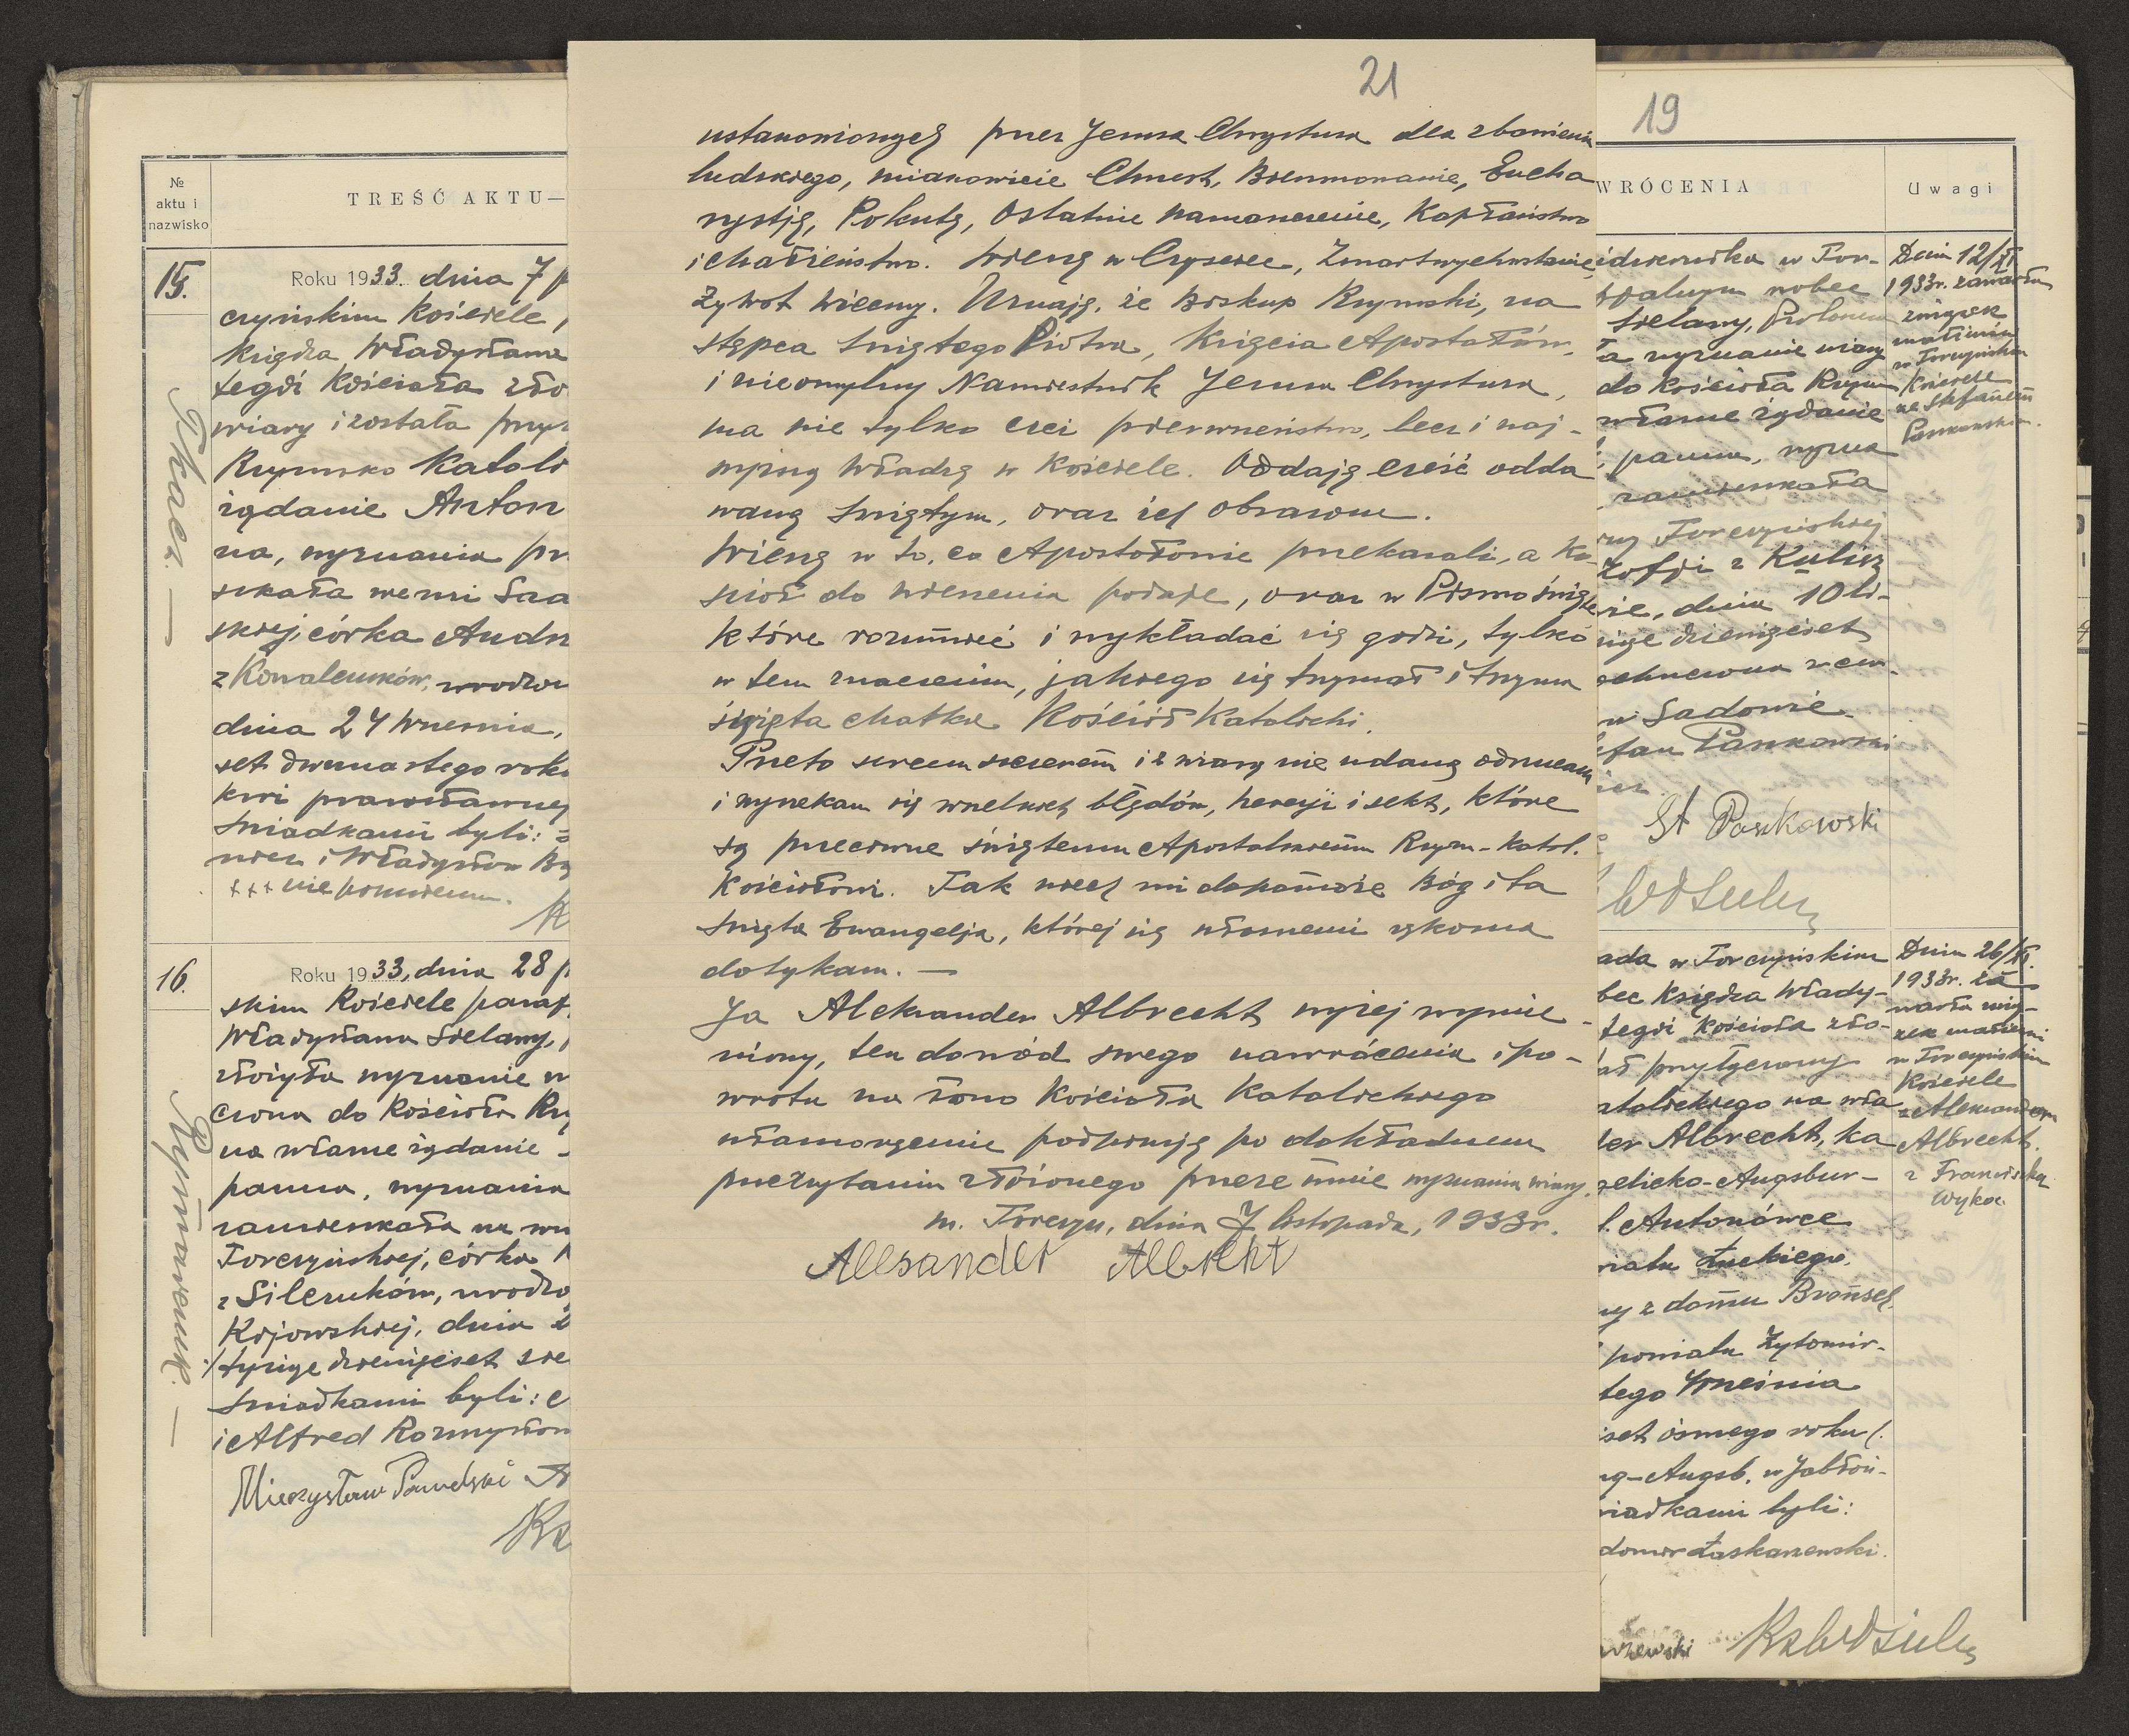 №
aktu i
nazwisko
TREŚĆ AKTU—
15.
Tkacz. —
Roku 1933. dnia 7 p
czyńskim Kościele,
Księdza Władysława
tegoż Kościoła zło
wiary i została przył
Rzymsko Katoli
żądanie Anton
na, wyznania pr
szkała we wsi Sad
skiej, córka Andrz
z Kowalczuków, urodzon
dnia 24 Września,
set dwunastego roku
kwi prawosławnej
Świadkami byli:
i Władysław
+++ niepiśmienn.
16.
Roku 1933, dnia 28 p
skim Kościele paraf
Władysława Sielawy,
złożyła wyznanie w
czona do Kościoła Rzy
na własne żądanie
panna, wyznania
zamieszkała na
Torczyńskiej, córka
z Silczuków, urodzo
Kijowskiej, dnia 2
tysiąc dziewięćset
Świadkami byli:
i Alfred Rozmysłow
Mieczysław
21
ustanowionych przez Jezusa Chrystusa dla zbawienia
ludzkiego, mianowicie Chrzest, Bierzmowanie, Eucha
rystję, Pokutę, Ostatnie Namaszczenie, Kapłaństwo
i Małżeństwo. Wierzę w Czyściec, Zmartwychwstanie,
Żywot Wieczny. Uznaję, że Biskup Rzymski, na
stępca Świętego Piotra, Księcia Apostołów,
i nieomylny Namiestnik Jezusa Chrystusa,
ma nie tylko czci pierwszeństwo, lecz i naj-
wyższą Władzę w Kościele. Oddaję cześć odda
waną Świętym, oraz ich obrazom.
Wierzę w to, co Apostołowie przekazali, a Ko-
ściół do wierzenia podaje, oraz w Pismo święte
które rozumieć i wykładać się godzi, tylko
w tem znaczeniu, jakiego się trzymał i trzyma
święta Matka Kościół Katolicki.
Przeto sercem szczerem i z wiarą nie udaną odrzucam
i wyrzekam się wszelkich błędów, herezji i sekt, które
są przeciwne świętemu Apostolskiemu Rzym-Katol.
Kościołowi. Tak niech mi dopomoże Bóg i ta
Święta Ewangelja, której się własnemi rękoma
dotykam. —
Ja Aleksander Albrecht wyżej wymie-
niony, ten dowód swego nawrócenia i po-
wrotu na łono Kościoła Katolickiego
własnoręcznie podpisuję po dokładnem
przeczytaniu złożonego przeze mnie wyznania wiary.
m. Torczyn, dnia 7 listopada, 1933r.
Allsander Albreht
19
WRÓCENIA
Uwagi
idziernika w Tor-
falnym wobec
Sielawy, Probosz
ła wyznanie wiary
do Kościoła Rzym
własne żądanie
, panna, wyzna
zamieszkała
Torczyńskiej
Zofji z Kulisz
dnia 10 li-
siąc dziewięćset
ochrzczona w cer-
w Sadowie.
efan Paszkowski
St Paszkowski
Dnia 12/XI
1933r. zawarła
związek
małżeński
w Torczyńskim
Kościele
ze Stefanem
Paszkowskim.
ada w Torczyńskim
bec Księdza Włady-
tegoż Kościoła zło-
ał przyłączony
atolickiego na wła
der Albrecht, ka
gelicko-Augsbur-
Antonówce
wiatu Łuckiego,
ny z domu
powiatu Żytomir-
tego Września
set ósmego roku/.
ng-Augsb. w Jabłon-
wiadkami byli:
domir Łaskarzewski.
arzewski
Dnia 26/XI.
1933r. za
warła zwią-
zek małżeński
w Torczyńskim
Kościele
z Aleksandrem
Albrecht.
z Franciszką
Wyka